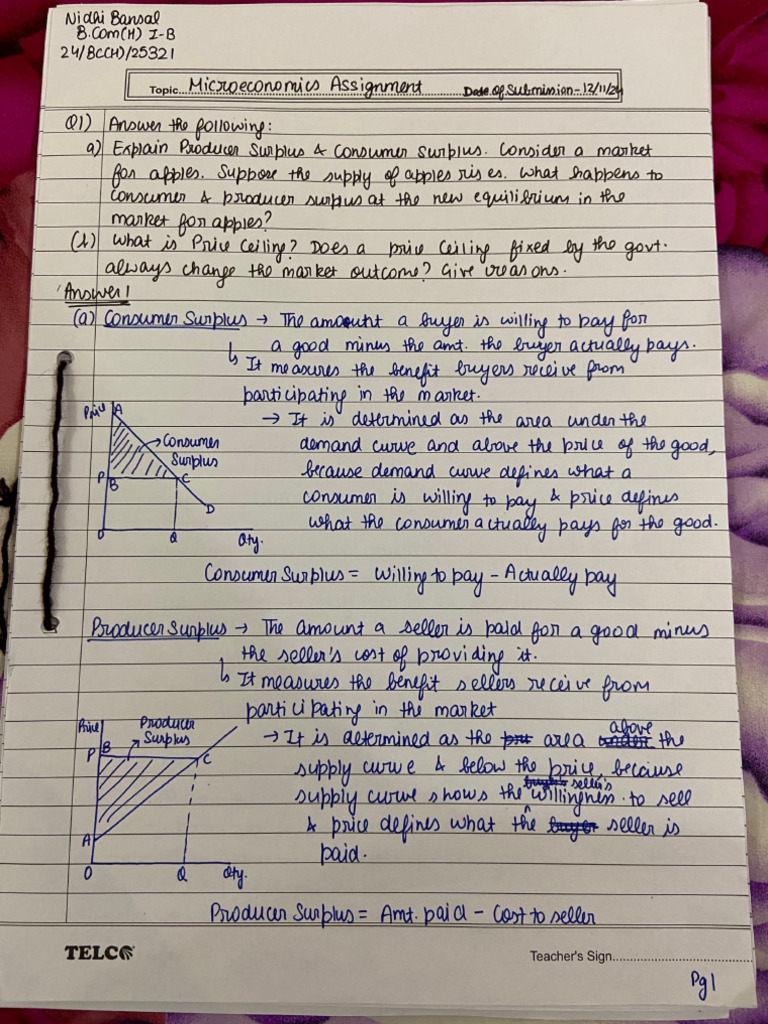 Nidhi Bansal
B.Com(H) I-B
24/BC(H)/25321
Topic... Microeconomics Assignment Date of Submission - 12/11/24
Q1) Answer the following:
a) Explain Producer Surplus & Consumer Surplus. Consider a market
for apples. Suppose the supply of apples rises. What happens to
consumer & producer surplus at the new equilibrium in the
market for apples?
(b) What is Price Ceiling? Does a price ceiling fixed by the govt.
always change the market outcome? Give reasons.
Answer 1
(a) Consumer Surplus → The amount a buyer is willing to pay for
a good minus the amt. the buyer actually pays.
↳ It measures the benefit buyers receive from
participating in the market.
→ It is determined as the area under the
demand curve and above the price of the good,
because demand curve defines what a
consumer is willing to pay & price defines
what the consumer actually pays for the good.
Price
A
Consumer
Surplus
P
B
C
D
O
Q
Qty.
Consumer Surplus = Willing to pay - Actually pay
Producer Surplus → The amount a seller is paid for a good minus
the seller's cost of providing it.
↳ It measures the benefit sellers receive from
participating in the market
→ It is determined as the area above the
supply curve & below the price, because
supply curve shows the seller's willingness to sell
& price defines what the seller is
paid.
Price
Producer
Surplus
P
B
C
A
O
Q
Qty.
Producer Surplus = Amt. paid - Cost to seller
TELCO
Teacher's Sign.......................................
Pg 1